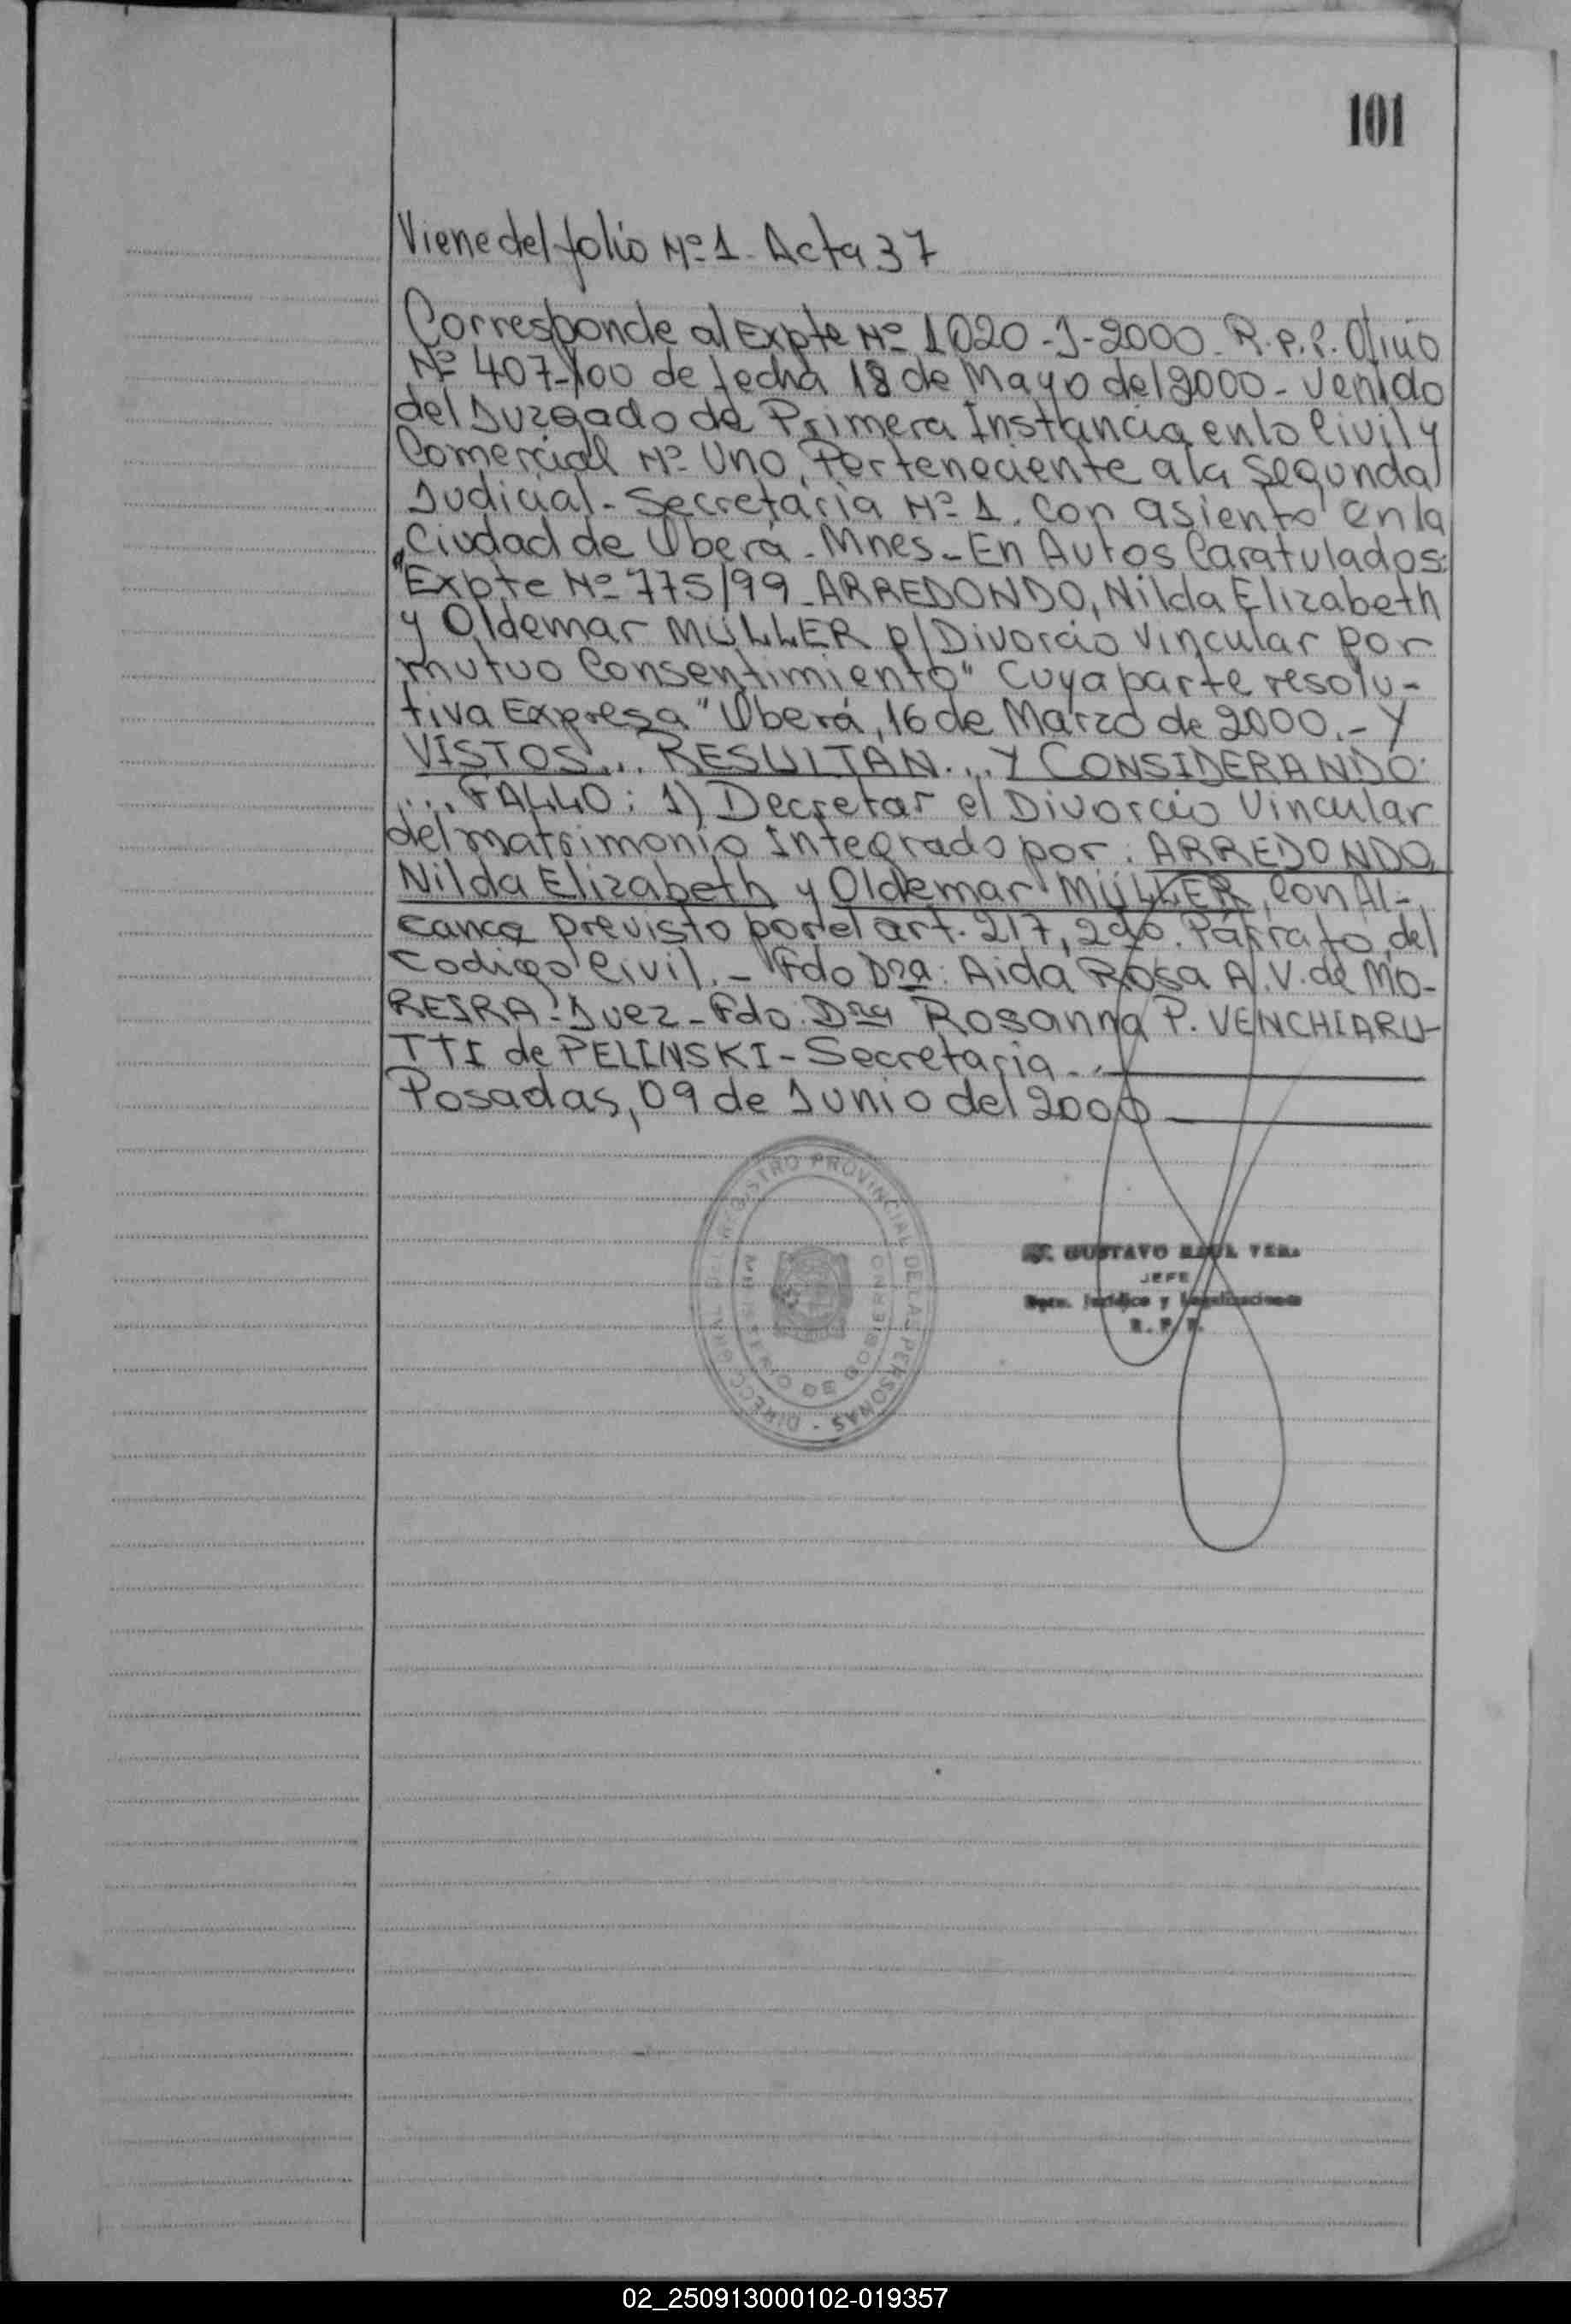 101
Viene del folio Nº 1. Acta 37
Corresponde al Expte Nº 1020-J-2000. R.P.P. Oficio
Nº 407-/00 de fecha 18 de Mayo del 2000 - Venido
del Juzgado de Primera Instancia en lo Civil y
Comercial Nº Uno, Perteneciente a la Segunda
Judicial - Secretaria Nº 1, con asiento en la
Ciudad de Oberá - Mnes - En Autos Caratulados:
"Expte Nº 775/99 - ARREDONDO, Nilda Elizabeth
y Oldemar MÜLLER p/ Divorcio Vincular por
mutuo Consentimiento" Cuya parte resolu-
tiva Expresa "Oberá, 16 de Marzo de 2000.- Y
VISTOS... RESULTAN... Y CONSIDERANDO:
.... FALLO: 1) Decretar el Divorcio Vincular
del matrimonio Integrado por: ARREDONDO,
Nilda Elizabeth y Oldemar MÜLLER, Con Al-
cance previsto por el art. 217, 2do. Párrafo, del
Codigo Civil. - Fdo Dra: Aida Rosa A.V. de MO-
REIRA - Juez - Fdo: Dra Rosanna P. VENCHIARU-
TTI de PELINSKI - Secretaria -
Posadas, 09 de Junio del 2000
DIRECC. GRAL. DEL REGISTRO PROVINCIAL DE LAS PERSONAS -
MINISTERIO DE GOBIERNO
GUSTAVO RAUL VERA
JEFE
Dpto. Jurídico y Legalizaciones
R. P. P.
02_250913000102-019357